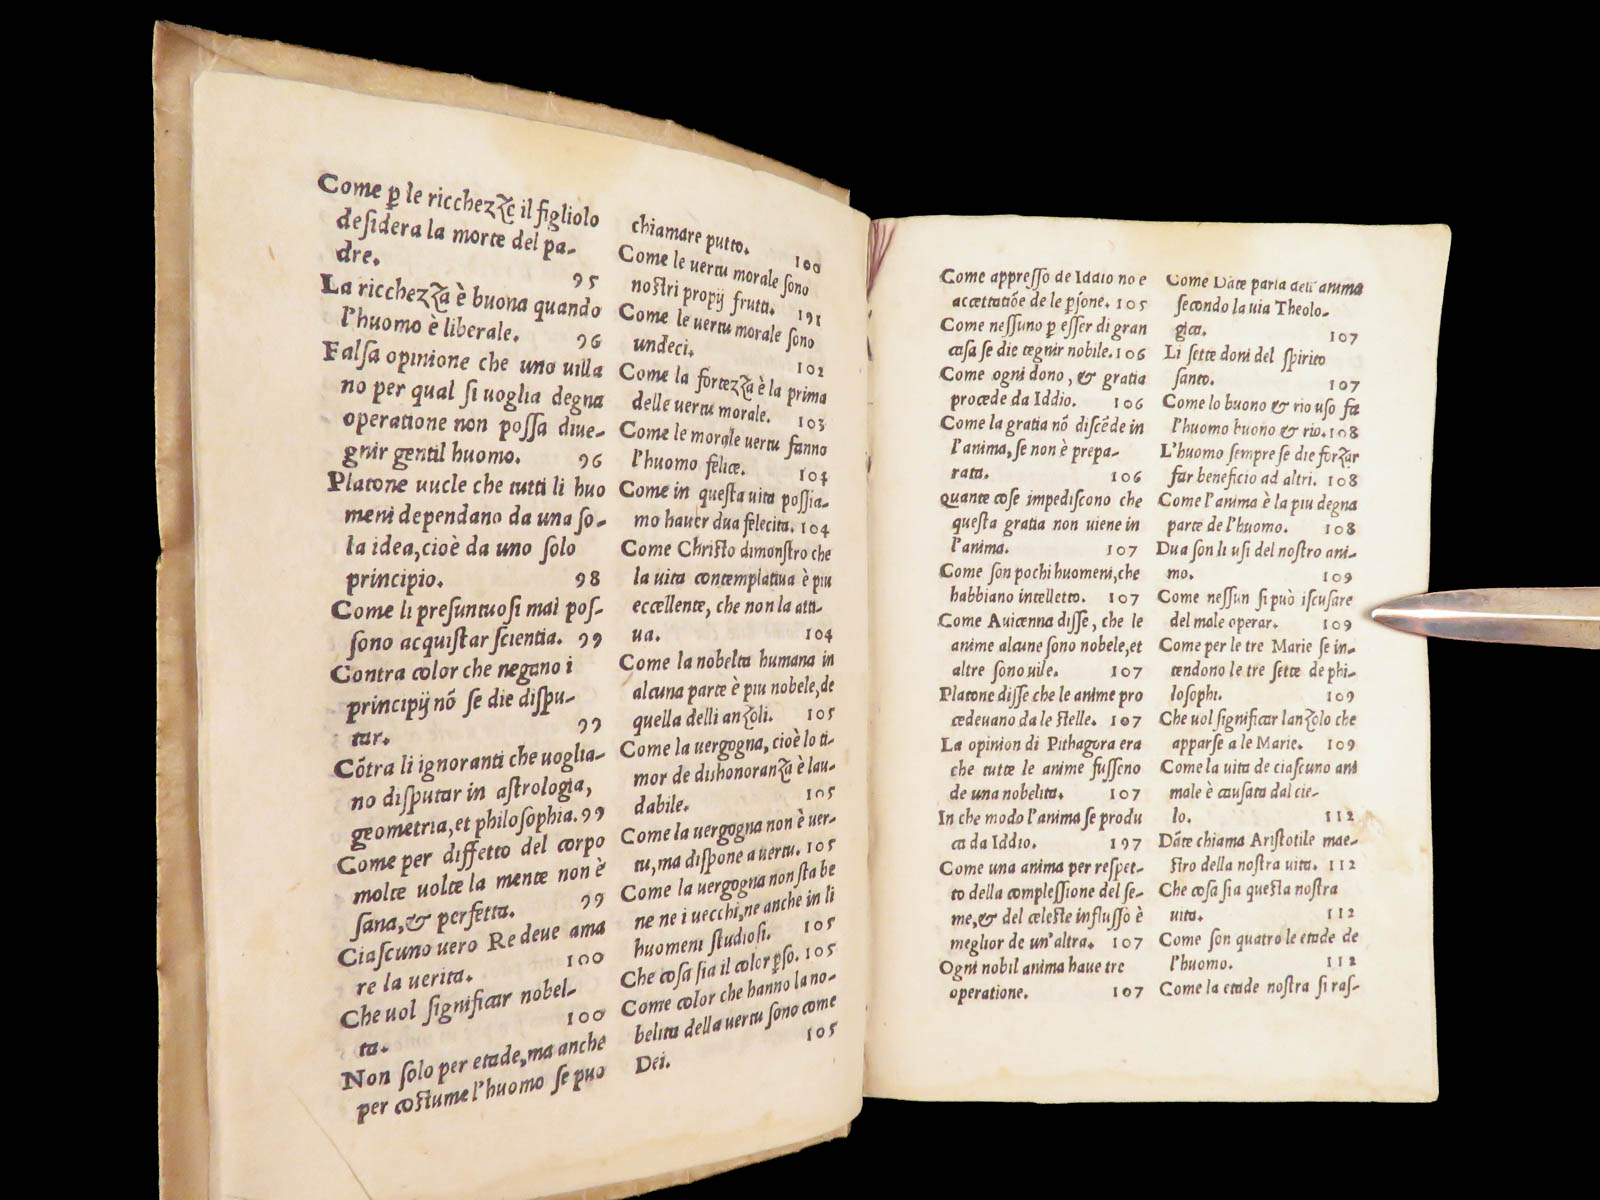 Come ꝑ le ricchezze il figliolo
deſidera la morte del pa-
dre. 95
La ricchezza è buona quando
l'huomo è liberale. 96
Falſa opinione che uno uilla
no per qual ſi uoglia degna
operatione non poſſa diue-
gnir gentil huomo. 96
Platone uuole che tutti li huo
meni dependano da una ſo-
la idea, cioè da uno ſolo
principio. 98
Come li preſuntuoſi mai poſ-
ſono acquiſtar ſcientia. 99
Contra color che negano i
principij nō ſe die diſpu-
tar. 99
Cōtra li ignoranti che uoglia-
no diſputar in aſtrologia,
geometria, et philoſophia. 99
Come per diffetto del corpo
molte uolte la mente non è
ſana, & perfetta. 99
Ciaſcuno uero Re deue ama
re la verita. 100
Che uol ſignificar nobel-
ta. 100
Non ſolo per etade, ma anche
per coſtume l'huomo ſe puo
chiamare putto. 100
Come le uertu morale ſono
noſtri propij frutti. 191
Come le uertu morale ſono
undeci. 102
Come la fortezza è la prima
delle uertu morale. 103
Come le morale uertu fanno
l'huomo felice. 104
Come in queſta uita poſſia-
mo hauer dua felecita. 104
Come Chriſto dimonſtro che
la uita contemplatiua è piu
eccellente, che non la atti-
ua. 104
Come la nobelta humana in
alcuna parte è piu nobele, de
quella delli anzoli. 105
Come la uergogna, cioè lo ti-
mor de dishonoranza è lau-
dabile. 105
Come la uergogna non è uer-
tu, ma diſpone a uertu. 105
Come la uergogna non ſta be
ne ne i uecchi, ne anche in li
huomeni ſtudioſi. 105
Che coſa ſia il color ꝑſo. 105
Come color che hanno la no-
belita della uertu ſono come
Dei. 105
Come appreſſo de Iddio no e
accettatiōe de le ꝑſone. 105
Come neſſuno ꝑ eſſer di gran
caſa ſe die tegnir nobile. 106
Come ogni dono, & gratia
procede da Iddio. 106
Come la gratia nō diſcēde in
l'anima, ſe non è prepa-
rata. 106
Quante coſe impediſcono che
queſta gratia non viene in
l'anima. 107
Come ſon pochi huomeni, che
habbiano intelletto. 107
Come Auicenna diſſe, che le
anime alcune ſono nobele, et
altre ſono uile. 107
Platone diſſe che le anime pro
cedeuano da le ſtelle. 107
La opinion di Pithagora era
che tutte le anime fuſſeno
de una nobelita. 107
In che modo l'anima ſe produ
ca da Iddio. 197
Come una anima per reſpet-
to della compleſſione del ſe-
me, & del celeſte influſſo è
meglior de un'altra. 107
Ogni nobil anima haue tre
operatione. 107
Come Dāte parla dell'anima
ſecondo la uia Theolo-
gica. 107
Li ſette doni del ſpirito
ſanto. 107
Come lo buono & rio uſo fa
l'huomo buono & rio. 108
L'huomo ſempre ſe die forzar
far beneficio ad altri. 108
Come l'anima è la piu degna
parte de l'huomo. 108
Dua ſon li uſi del noſtro ani-
mo. 109
Come neſſun ſi può iſcuſare
del male operar. 109
Come per le tre Marie ſe in-
tendono le tre ſette de phi-
loſophi. 109
Che uol ſignificar lanzolo che
apparſe a le Marie. 109
Come la uita de ciaſcuno ani
male è cauſata dal cie-
lo. 112
Dāte chiama Ariſtotile mae-
ſtro della noſtra uita. 112
Che coſa ſia queſta noſtra
uita. 112
Come ſon quatro le etade de
l'huomo. 112
Come la etade noſtra ſi raſ-